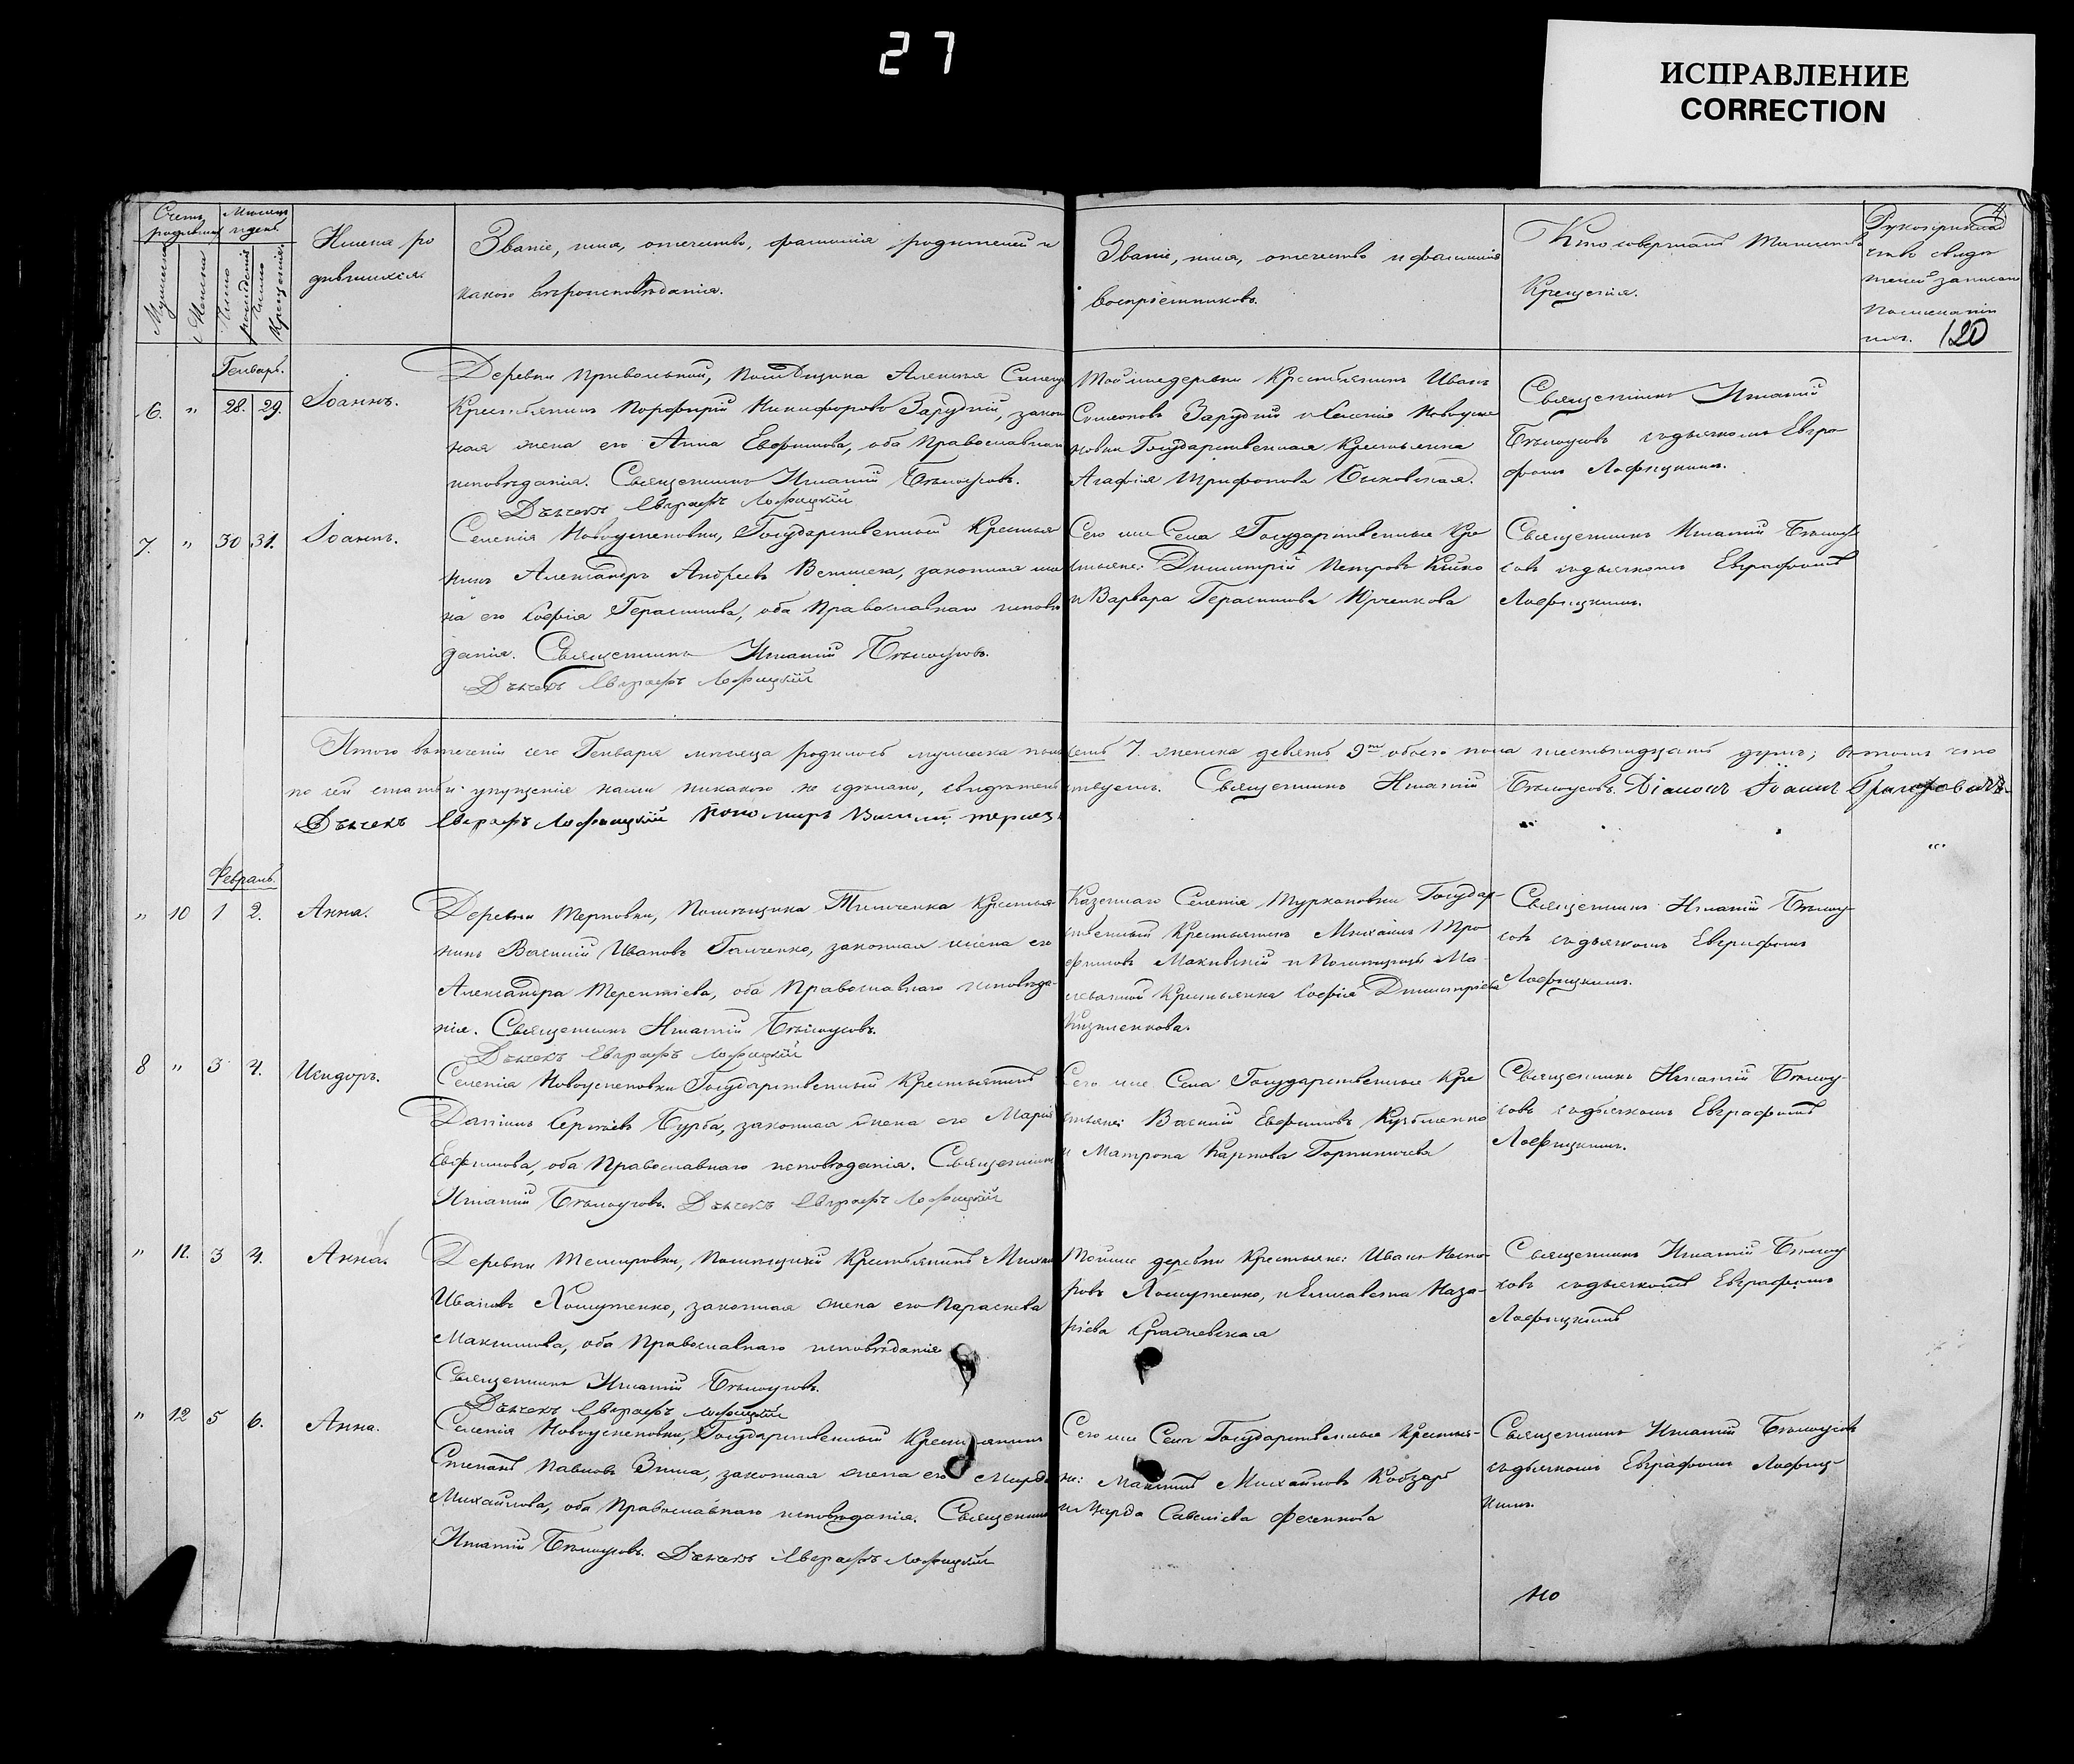 27
ИСПРАВЛЕНИЕ
CORRECTION
4
120
Счетъ родившихся
Мѣсяцъ и день
Мужеска
Женска
Число рожденія
Число крещенія
Имена ро
дившихся.
Званіе, имя, отечество, фамилія родителей и
какого вѣроисповѣданія.
Званіе, имя, отечество и фамилія
воспріемниковъ.
Кто совершалъ таинство
Крещенія.
Рукоприклад
ство свидѣ
телей записи
по желанію
Генварь.
6. " 28. 29.
Іоаннъ.
Деревни Привольной, Помѣщика Алексѣя
Крестьянинъ Порфирій Никифоровъ Зарудній, закон
ная жена его Анна Евфимова, оба Православнаго
исповѣданія. Священникъ Игнатій Бѣлоусовъ.
Дьячекъ Евграфъ Лофицкій
Той же деревни Крестьянинъ Иванъ
Симеоновъ Зарудній и Селенія Новоуспе
новки Государственная Крестьянка
Агафія Трифонова Быковская.
Священникъ Игнатій
Бѣлоусовъ съ дьячкомъ Евгра-
фомъ Лофицкимъ.
7. " 30 31.
Іоаннъ.
Селенія Новоуспеновки, Государственный Крестья
нинъ Александръ Андреевъ законная же
на его Софія Герасимова, оба Православнаго исповѣ
данія. Священникъ Игнатій Бѣлоусовъ.
Дьячекъ Евграфъ Лофицкій
Сего же Села Государственные Кре
стьяне: Димитрій Петровъ Кийко
и Варвара Герасимова Юрченкова
Священникъ Игнатій Бѣлоу
совъ съ дьячкомъ Евграфомъ
Лофицкимъ.
Итого въ теченіи сего Генваря мѣсяца родилось мужеска пола семь 7. женска девять 9ть обоего пола шестьнадцать душъ; въ томъ что
по сей статьи упущенія нами никакого не сдѣлано, свидѣтельствуемъ. Священникъ Игнатій Бѣлоусовъ. Діаконъ Іоаннъ
Дьячекъ Евграфъ Лофицкій Пономаръ Василій
Февраль.
" 10 1 2.
Анна.
Деревни Терновки, Помѣщика Крестья
нинъ Василій Ивановъ Ганченко, законная жена его
Александра Терентіева, оба Православнаго исповѣда-
нія. Священникъ Игнатій Бѣлоусовъ.
Дьячекъ Евграфъ Лофицкій
Казеннаго Селенія Туркановки Государ-
ственный Крестьянинъ Михаилъ Тро
фимовъ и Помѣщицы
Крестьянка Софія Димитріева
Священникъ Игнатій Бѣлоу
совъ съ дьячкомъ Евграфомъ
Лофицкимъ.
8 " 3 4.
Исидоръ.
Селенія Новоуспеновки Государственный Крестьянинъ
Даніилъ Сергіевъ Бурба, законная жена его Марія
Евфимова, оба Православнаго исповѣданія. Священникъ
Игнатій Бѣлоусовъ. Дьячекъ Евграфъ Лофицкій
Сего же Села Государственные Кре
стьяне: Василій Евфимовъ Кузьменко
и Матрона Карпова
Священникъ Игнатій Бѣлоу-
совъ съ дьячкомъ Евграфомъ
Лофицкимъ.
" 11. 3 4.
Анна.
Деревни Темировки, Помѣщичій Крестьянинъ
Ивановъ Хомутенко, законная жена его Параскева
Максимова, оба Православнаго исповѣданія
Священникъ Игнатій Бѣлоусовъ.
Дьячекъ Евграфъ Лофицкій
Той же деревни Крестьяне: Иванъ
Хомутенко, и Елисавета Наза-
ріева
Священникъ Игнатій Бѣлоу
совъ съ дьячкомъ Евграфомъ
Лофицкимъ
" 12 5 6.
Анна.
Селенія Новоуспеновки, Государственный Крестьянинъ
Степанъ Павловъ законная жена его
Михайлова, оба Православнаго исповѣданія. Священникъ
Игнатій Бѣлоусовъ. Дьячекъ Евграфъ Лофицкій
Сего же Села Государственные Крестья-
не: Михайловъ Кобзарь
и Савеліева
Священникъ Игнатій Бѣлоусовъ
съ дьячкомъ Евграфомъ Лофиц-
кимъ.